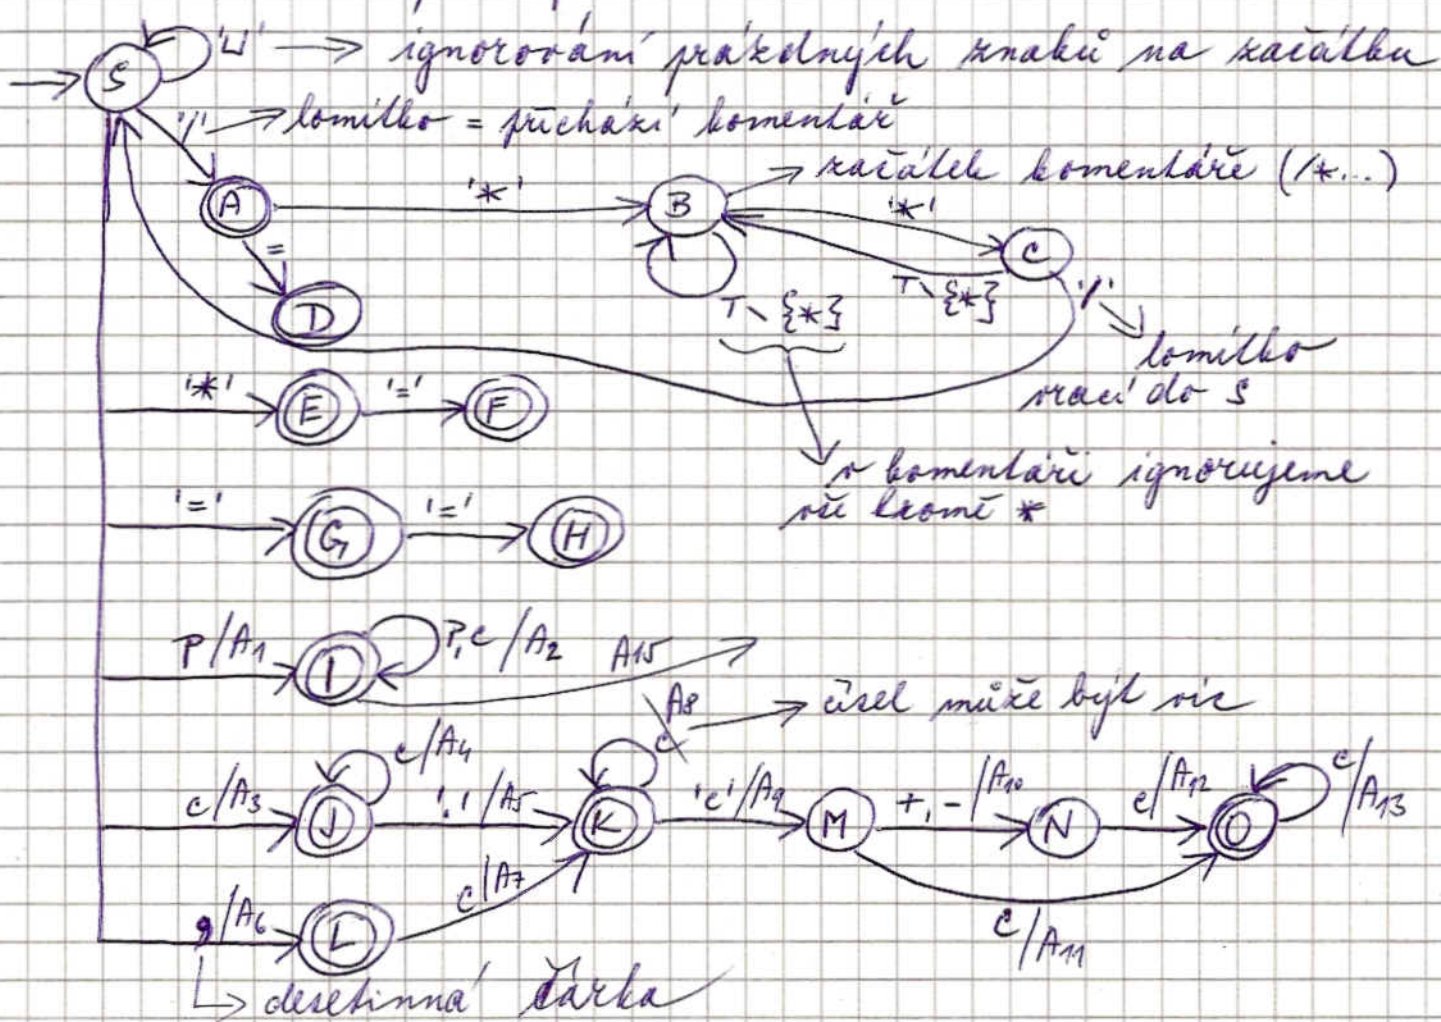 S '⊔' → ignorování prázdných znaků na začátku
'/' → lomítko = přichází komentář
A '*' B → začátek komentáře (/*...)
= '*' C
D T \ {*} T \ {*} '/'
lomítko
vrací do S
'*' E '=' F
v komentáři ignorujeme
vše kromě *
'=' G '=' H
P/A1 I P,C/A2 A15
A8 → čísel může být víc
c/A3 J c/A4 '.'/A5 K c 'e'/A9 M +,-/A10 N c/A12 O c/A13
,/A6 L c/A7 c/A11
↳ desetinná čárka